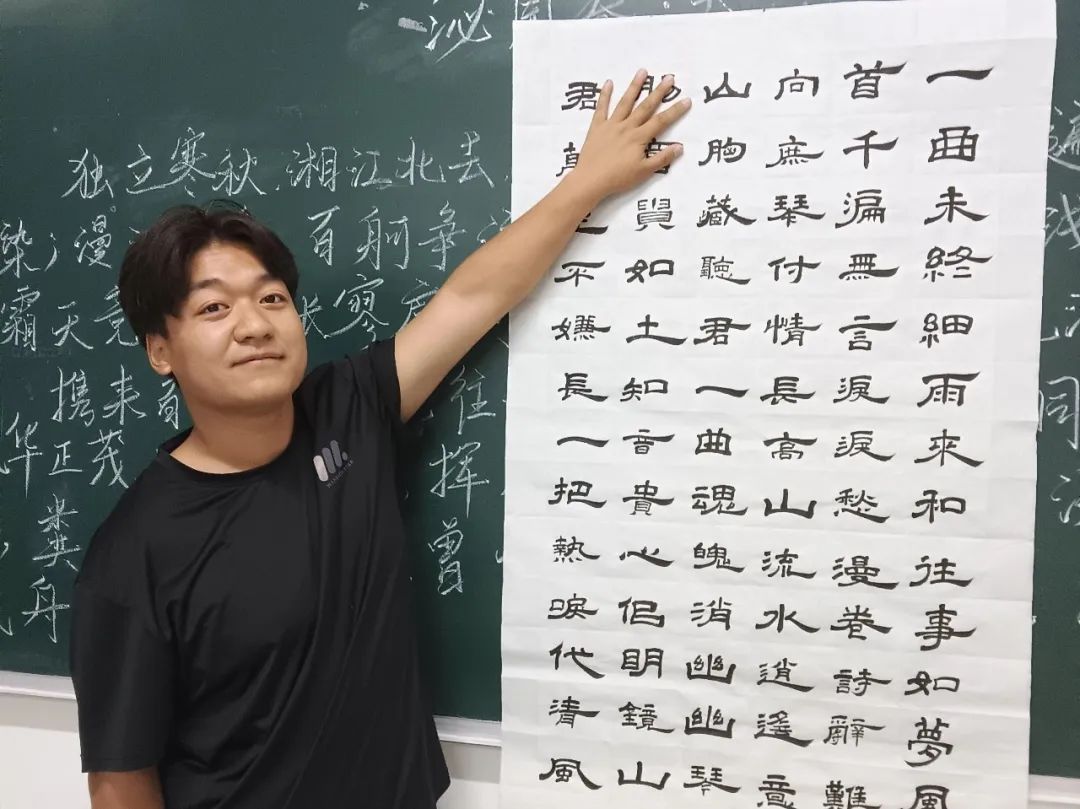 沁
独立寒秋,湘江北去,
染;漫 百舸争
霜天竞 寥
携来 往
华正茂 挥
粪 曾
舟
遍
同
一曲未終細雨來和往事如夢風
首千無言淚淚愁漫卷詩辭難
向琴付情長高山流水逍遙意
山胸藏聽君一曲魂魄消幽幽琴
如土知音貴心侶明鏡山
君不嫌長一把熱淚代清風